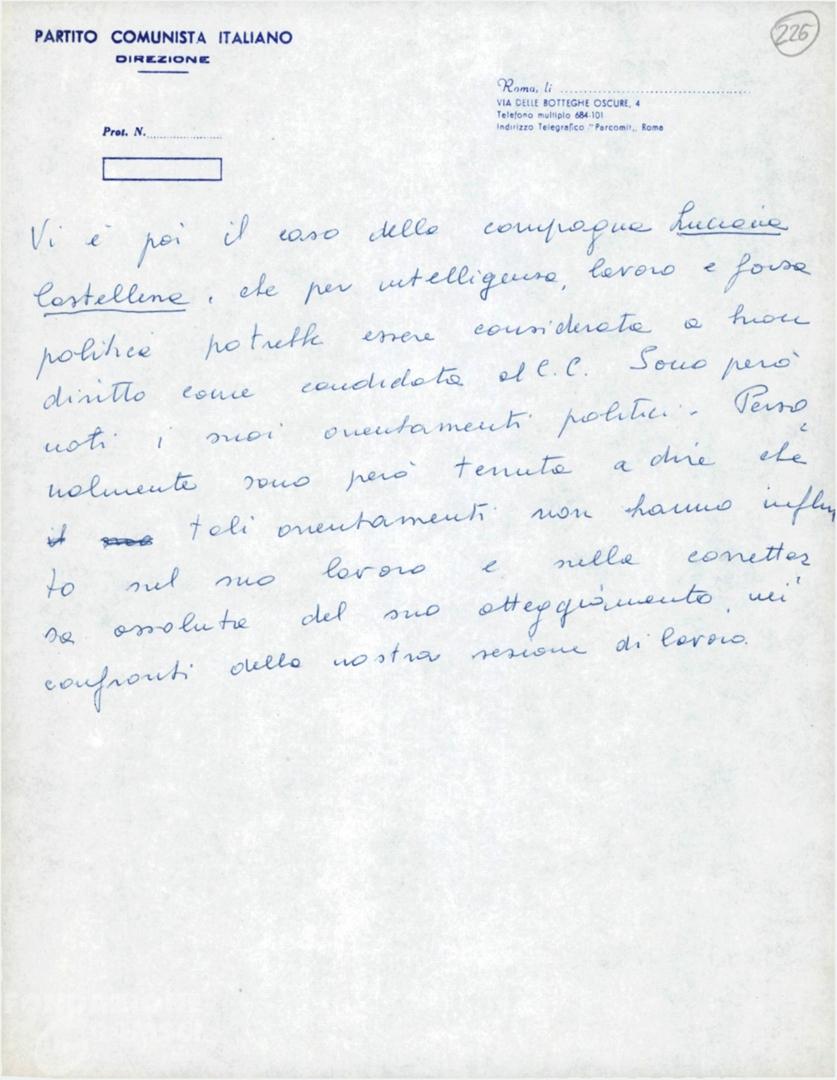 PARTITO COMUNISTA ITALIANO
DIREZIONE
226
Roma, li
VIA DELLE BOTTEGHE OSCURE, 4
Telefono multiplo 684-101
Indirizzo Telegrafico "Parcomit„ Roma
Prot. N.
Vi è poi il caso della compagna Luciana
Castellina, che per intelligenza, lavoro e forza
politica potrebbe essere considerata a buon
diritto come candidata al C.C. Sono però
noti i suoi orientamenti politici. Perso
nalmente sono però tenuta a dire che
il suo tali orientamenti non hanno influi
to nel suo lavoro e nella correttez
za assoluta del suo atteggiamento nei
confronti della nostra sezione di lavoro.